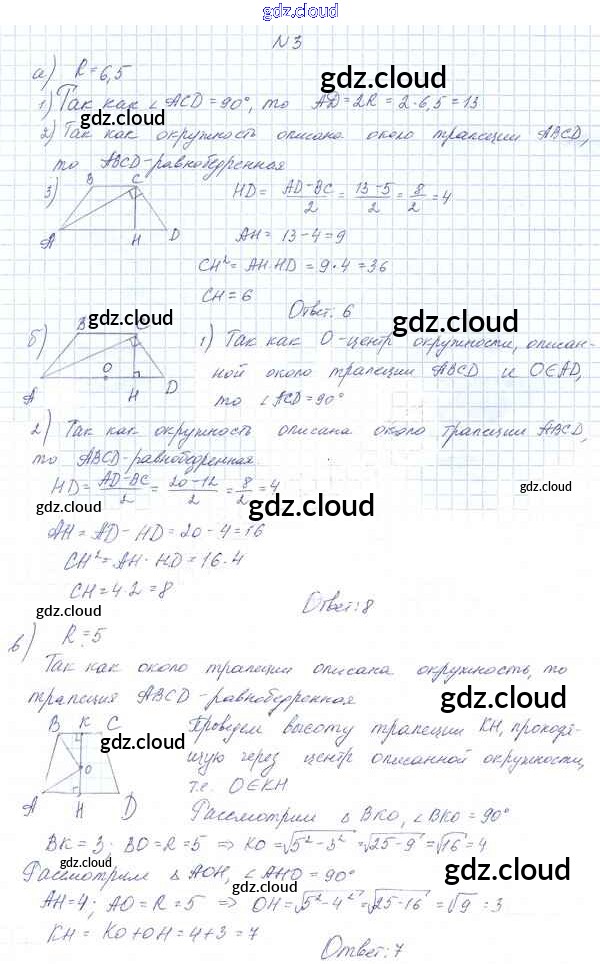 gdz.cloud
N 3
а) R=6,5
gdz.cloud
1) Так как ∠ACD=90°, то AD=2R=2·6,5=13
gdz.cloud
2) Так как окружность описана около трапеции ABCD,
то ABCD-равнобедренная
gdz.cloud
3) B C HD = (AD-BC)/2 = (13-5)/2 = 8/2 = 4
A H D AH = 13-4=9
CH²= AH·HD = 9·4 = 36
CH = 6
Ответ: 6
gdz.cloud
gdz.cloud
б) B C 1) Так как O-центр окружности, описан-
ной около трапеции ABCD и O∈AD,
gdz.cloud
A O H D то ∠ACD=90°
2) Так как окружность описана около трапеции ABCD,
то ABCD-равнобедренная
HD = (AD-BC)/2 = (20-12)/2 = 8/2 = 4
gdz.cloud
gdz.cloud
gdz.cloud
AH = AD-HD = 20-4=16
CH²= AH·HD = 16·4
gdz.cloud
CH=4·2=8
Ответ: 8
gdz.cloud
в) R=5
Так как около трапеции описана окружность, то
трапеция ABCD-равнобедренная
gdz.cloud
B K C Проведем высоту трапеции KH, проходя-
gdz.cloud
O щую через центр описанной окружности,
т.е. O∈KH
gdz.cloud
A H D Рассмотрим △ BKO, ∠BKO=90°
BK=3; BO=R=5 ⇒ KO=√5²-3² = √25-9 = √16 = 4
gdz.cloud
gdz.cloud
Рассмотрим △ AOH, ∠AHO=90°
AH=4; AO=R=5 ⇒ OH=√5²-4² = √25-16 = √9 = 3
KH = KO+OH = 4+3 = 7
gdz.cloud
Ответ: 7